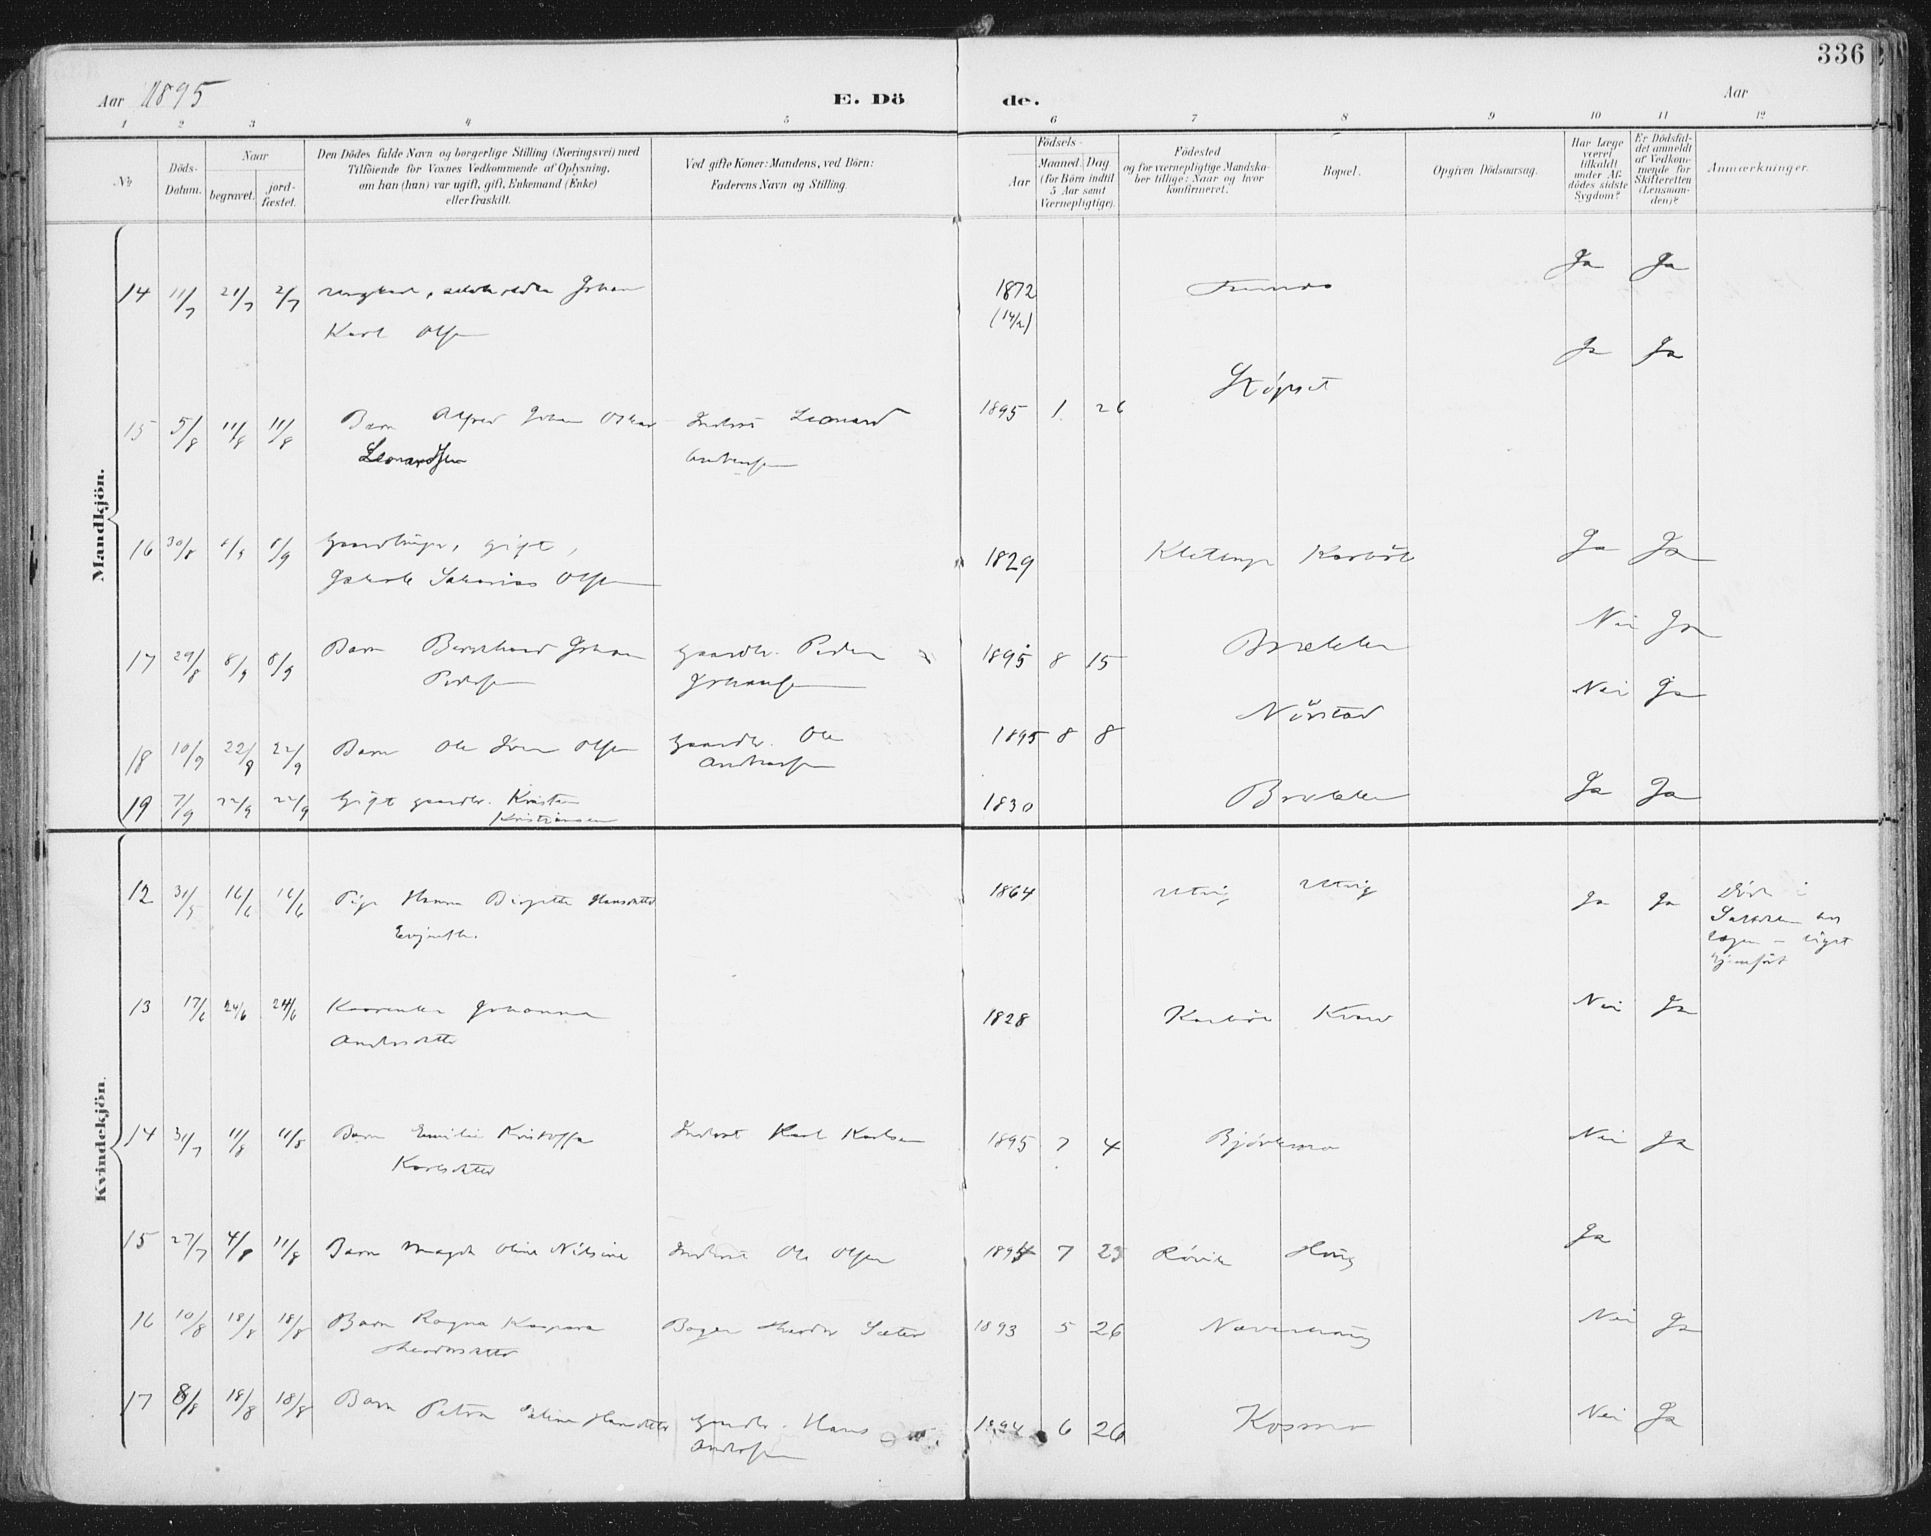 336
Aar 1895
E. Döde.
Aar
1 2 3 4 5 6 7 8 9 10 11 12
No
Döds-Datum.
Naar
begravet.
jord-fæstet.
Den Dödes fulde Navn og borgerlige Stilling (Næringsvei) med
Tilföiende for Voxnes Vedkommende af Oplysning,
om han (hun) var ugift, gift, Enkemand (Enke)
eller fraskilt.
Ved gifte Koner: Mandens, ved Börn:
Faderens Navn og Stilling.
Födsels-
Aar
Maaned. Dag
(for Börn indtil
5 Aar samt
Værnepligtige).
Födested
og for værnepligtige Mandska-
ber tillige: Naar og hvor
konfirmeret.
Bopæl.
Opgiven Dödsaarsag.
Har Læge
været
tilkaldt
under Af-
dödes sidste
Sygdom?
Er Dödsfal-
det anmeldt
af Vedkom-
mende for
Skifteretten
(Lensman-
den)?
Anmærkninger.
Mandkjön.
14 11/7 21/7 21/7 Johan 1872 Ja Ja
Karl Olsen (14/2)
15 5/8 11/8 11/8 Barn Alfred Johan Oskar Inderst Leonard 1895 1 26 Ja Ja
Leonardsen Andreassen
16 30/8 8/9 8/9 gift, 1829 Ja Ja
Jakob Olsen
17 29/8 8/9 8/9 Barn Bernhard Johan Gaardbr. Peder 1895 8 15 Brække Nei Ja
Pedersen Johansen
18 10/9 22/9 22/9 Barn Ole Olsen Gaardbr. Ole 1895 8 8 Nei Ja
Andreassen
19 7/9 22/9 22/9 Gift gaardbr. Kristen 1830 Brække Ja Ja
Kristiansen
Kvindekjön.
12 31/5 16/6 16/6 Pige Hanna Birgitte Hansdatter 1864 Utvig Utvig Ja Ja Döde i
13 17/6 24/6 24/6 Johanna 1828 Nei Ja
Andersdatter
14 31/7 11/8 11/8 Barn Emilie Kristoffa Inderst Karl Karlsen 1895 7 4 Björkmo Nei Ja
Karlsdatter
15 27/7 4/8 11/8 Barn Magda Oline Nilsine Inderst Ole Olsen 1894 7 23 Rövik Haug Ja
16 10/8 18/8 18/8 Barn Ragna Kaspara 1893 5 26 Næverhaug Nei Ja
17 8/8 18/8 18/8 Barn Petra Hansdatter Gaardbr. Hans 1894 6 26 Kosmo Nei Ja
Andersen